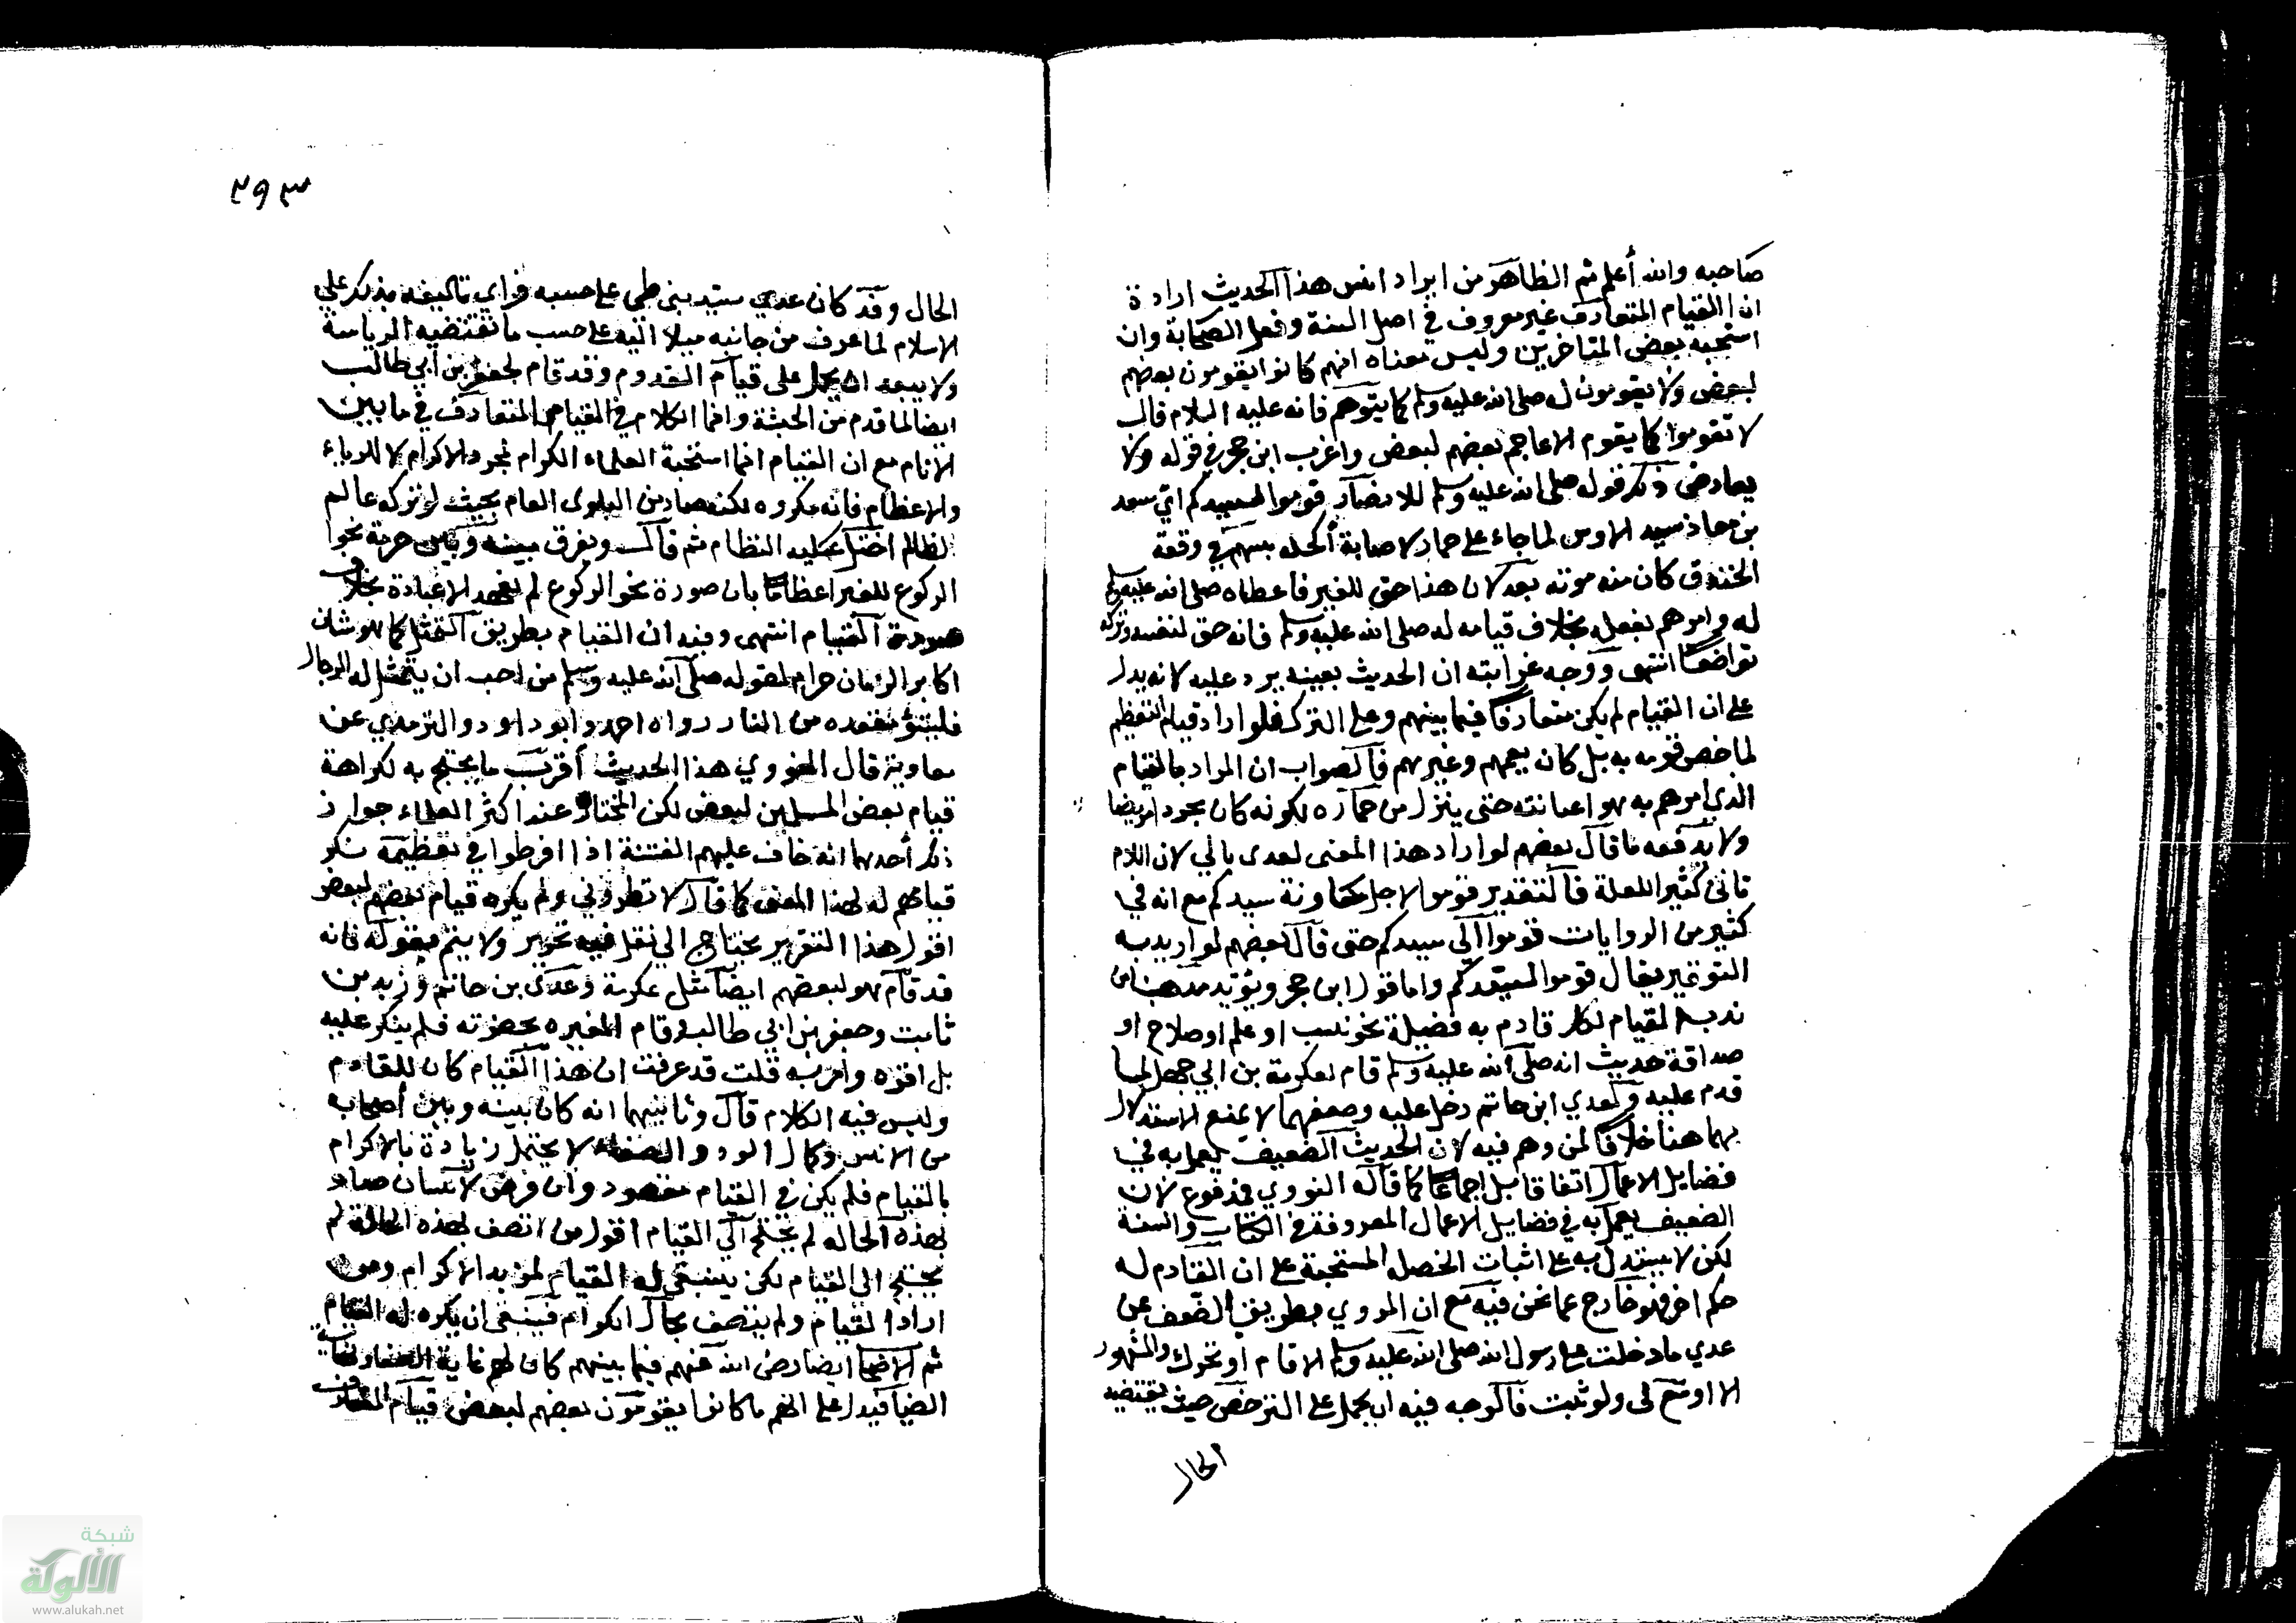 صاحبه والله أعلم ثم الظاهر من ايراد انس هذا الحديث ارادة
ان القيام المتعارف غير معروف في اصل السنة وفعل الصحابة وان
استحبه بعض المتاخرين وليس معناه انهم كانوا يقومون بعضهم
لبعض ولا يقومون له صلى الله عليه وسلم كما يتوهم فانه عليه السلام قال
لا تقوموا كما يقوم الاعاجم بعضهم لبعض واغرب ابن حجر في قوله ولا
يعارض ذلك قوله صلى الله عليه وسلم للانصار قوموا لسيدكم اي سعد
بن معاذ سيد الاوس لما جاء على حمار لاصابة أكحله بسهم في وقعة
الخندق كان منه موته بعد لان هذا حق للغير فاعطاه صلى الله عليه وسلم
له وامرهم بفعله بخلاف قيامه له صلى الله عليه وسلم فانه حق لنفسه وتركه
تواضعا انتهى ووجه غرابته ان الحديث بعينه يرد عليه لانه يدل
على ان القيام لم يكن متعارفا فيما بينهم وعلى التنزل فلو اراد قيام التعظيم
لما خص قومه به بل كان يعمهم وغيرهم فالصواب ان المراد بالقيام
الذي امرهم به هو اعانته حتى ينزل من حماره لكونه كان مجروحا مريضا
ولا يدفعه ما قال بعضهم لو اراد هذا المعنى لعدى بالي لان اللام
تاتي كثيرا للعلة فالتقدير قوموا لاجل معاونة سيدكم مع انه في
كثير من الروايات قوموا الى سيدكم حتى قال بعضهم لو اريد به
التوقير يقال قوموا لسيدكم واما قول ابن حجر ويؤيد مذهبنا من
ندب القيام لكل قادم به فضيلة نحو نسب او علم او صلاح او
صداقة حديث انه صلى الله عليه وسلم قام لعكرمة بن ابي جهل لما
قدم عليه ولعدي ابن حاتم دخل عليه وضعفهما لا يمنع الاستدلال
بهما هنا خلافا لمن وهم فيه لان الحديث الضعيف يعمل به في
فضايل الاعمال اتفاقا بل اجماعا كما قاله النووي فمدفوع لان
الضعيف يعمل به في فضايل الاعمال المعروفة في الكتاب والسنة
لكن لا يستدل به على اثبات الخصلة المستحبة على ان القادم له
حكم اخر فهو خارج عما نحن فيه مع ان المروي بطريق الضعف عن
عدي ما دخلت على رسول الله صلى الله عليه وسلم الا قام او تحرك والمشهور
الا اوسع لي ولو ثبت فالوجه فيه ان يحمل على الترخص حيث يقتضيه
الحال
٢٩٣
الحال وقد كان عدي سيد بني طي على حسبه فراي تاليفه بذلك على
الاسلام لما عرف من جانبه ميلا اليه على حسب ما تقتضيه الرياسة
ولا يبعد ان يحمل على قيام القدوم وقد قام لجعفر بن أبي طالب
ايضا لما قدم من الحبشة وانما الكلام في القيام المتعارف في ما بين
الانام مع ان القيام انما استحبه العلماء الكرام لمجرد الاكرام لا للرياء
والاعظام فانه مكروه لكنه صار من البلوى العام بحيث لو تركه عالم
لظالم اختل عليه النظام ثم قال ويفرق بينه وبين حرمة نحو
الركوع للغير اعظاما بان صورة نحو الركوع لم تعهد الا عبادة بخلاف
صورة القيام انتهى وفيه ان القيام بطريق التمثل كما هو شان
اكابر الزمان حرام لقوله صلى الله عليه وسلم من احب ان يتمثل له الرجال
فليتبؤ مقعده من النار رواه احمد وابو داود والترمذي عن
معاوية قال النووي هذا الحديث أقرب ما يحتج به لكراهة
قيام بعض المسلمين لبعض لكن المختار عند اكثر العلماء جوازه
ذكر أحدهما انه خاف عليهم الفتنة اذا افرطوا في تعظيمه فكره
قيامهم له لهذا المعنى كما قال لا تطروني ولم يكره قيام بعضهم لبعض
اقول هذا التقرير يحتاج الى نقل فيه تحرير ولا يتم بقوله فانه
قد قام هو لبعضهم ايضا مثل عكرمة وعدي بن حاتم وزيد بن
ثابت وجعفر بن ابي طالب وقام المغيره بحضرته فلم ينكر عليه
بل اقره وامر به قلت قد عرفت ان هذا القيام كان للقادم
وليس فيه الكلام قال وثانيهما انه كان بينه وبين أصحابه
من الانس وكمال الود والصفاء لا يحتمل زيادة بالاكرام
بالقيام فلم يكن في القيام مقصود وان فرض لانسان صار
بهذه الحاله لم يحتج الى القيام اقول من اتصف بهذه الحالة لم
يحتج الى القيام لكن ينبغي له القيام لمزيد الاكرام ومن
اراد القيام ولم يتصف بحال الكرام فينبغي ان يكره له القيام
ثم الاصحاب ايضا رضي الله عنهم فيما بينهم كان لهم غاية الصفا ونهاية
الضيا فيدل على انهم ما كانوا يقومون بعضهم لبعض قيام المتعارف
شبكة
الألوكة
www.alukah.net